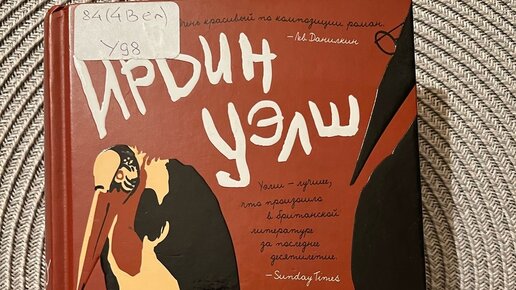 84(4Вел)
У98
ень красивый по композиции роман.
—Лев Данилкин
ИРВИН
УЭЛШ
Уэлш — лучшее,
что произошло
в британской
литературе
за последнее
десятилетие.
—Sunday Times